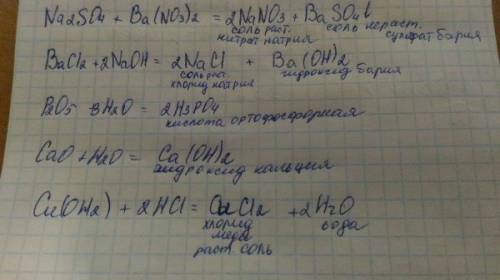 Na2SO4 + Ba(NO3)2 = 2NaNO3 + BaSO4↓
соль раст. соль нераст.
нитрат натрия сульфат бария
BaCl2 + 2NaOH = 2NaCl + Ba(OH)2
соль раст. гидроксид бария
хлорид натрия
P2O5 3H2O = 2H3PO4
кислота ортофосфорная
CaO + H2O = Ca(OH)2
гидроксид кальция
Cu(OH2) + 2HCl = CuCl2 + 2H2O
хлорид вода
меди
раст. соль